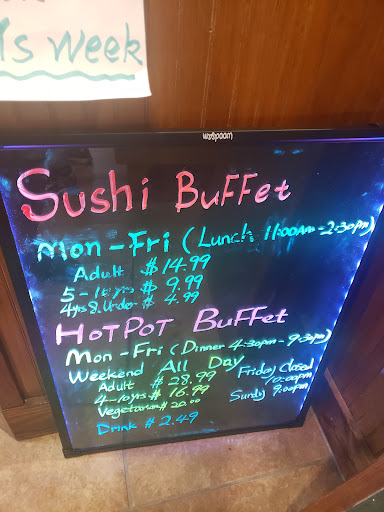 is week
woodsam
Sushi Buffet
Mon-Fri (Lunch 11:00AM-2:30pm)
Adult $14.99
5-10yrs $9.99
4yrs & Under $4.99
HOTPOT Buffet
Mon-Fri (Dinner 4:30pm-9:30pm)
Weekend All Day
Adult $28.99
4-10yrs $16.99
Vegetarian $20.00
Drink $2.49
Friday Closed
10:00pm
Sundy 9:00pm